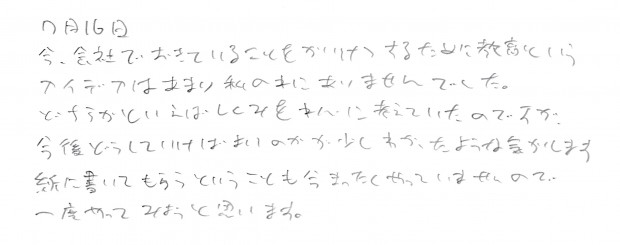 7月16日
今、会社でおきていることをかいけつするために教育という
アイデアはあまり私の中にありませんでした。
どちらかといえばしくみをメインに考えていたのですが、
今後どうしていけばよいのかが少しわかったような気がします
紙に書いてもらうということも今まったくやっていませんので
一度やってみようと思います。